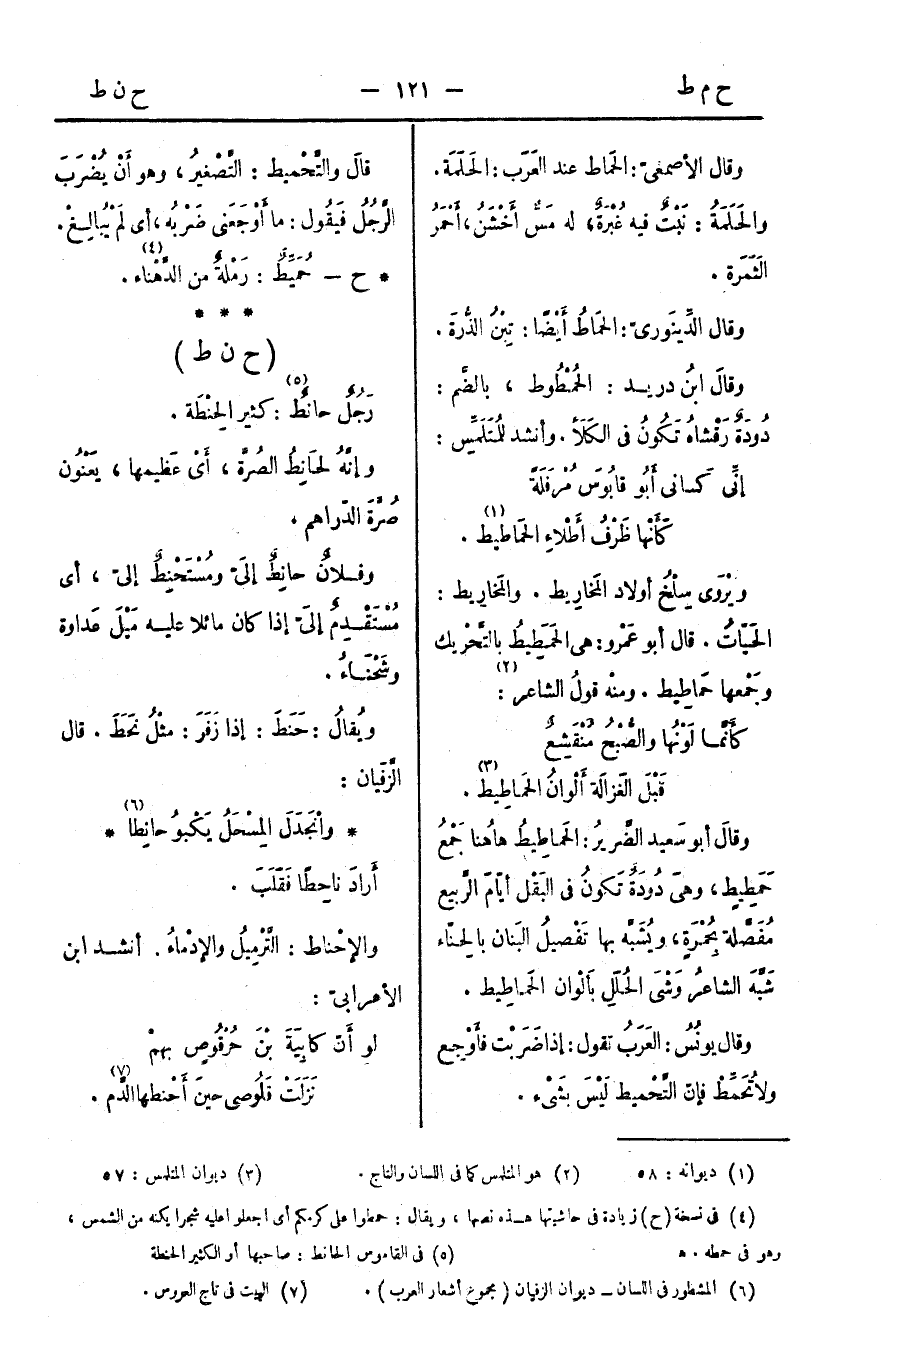 ح م ط — ١٢١ — ح ن ط
وقال الأصمَعِىّ : الحَماط عند العَرَب : الحَلَمَة .
والحَلَمَةُ : نَبْتٌ فيه غُبْرَةٌ ، له مَسٌّ أَخْشَنُ ، أَحْمَرُ
الثَمَرَة .
وقال الدِّينَورىّ : الحَمَاطُ أَيْضًا : تِبْنُ الذُّرَةَ .
وقالَ ابنُ دريــد : الحُمْطُوط ، بالضَّم :
دُودَةٌ رَقْشاءُ تَكُونُ فى الكَلَأ . وأنشد للمُتَلَمِّس :
إنِّى كَسانى أَبُو قابُوسَ مُرْفَلَةً
كَأَنَّها ظَرْفُ أَطْلاءِ الحَماطِيط (١) .
ويُرْوَى سِلْخُ أولاد المَخاريط . والمَخاريط :
الحَيّاتُ . قال أبو عَمْرو : هى الحَمَطِيطُ بالتَّحْريك
وجَمْعها حَماطِيط . ومنْه قولُ الشاعر (٢) :
كَأَنَّمــا لَوْنُها والصُّبْحُ مُنْقَشِعٌ
قَبْلَ الغَزالَة أَلْوانُ الحَمــاطِيط (٣) .
وقالَ أبو سَعيد الضَّريرُ : الحَماطِيطُ هاهُنا جَمْعُ
حَمَطِيطٍ ، وهىَ دُودَةٌ تَكونُ فى البَقْل أيّامَ الرَّبيع
مُفَصَّلة بِحُمْرَةٍ ، ويُشَبَّه بها تَفْصيلُ البَنان بالحِنّاء
شَبَّهَ الشاعرُ وَشْىَ الحُلَلِ بأَلْوان الحَمــاطِيط .
وقال يونُسُ : العَرَبُ تقول : إذا ضَرَبْت فأَوْجِع
ولا تُحَمِّطْ فإنّ التَّحْمِيط لَيْسَ بشَىْء .
قالَ والتَّحْميط : التَّصْغيرُ ، وهو أَنْ يُضْرَبَ
الرَّجُلُ فيَقُول : ما أَوْجَعَنى ضَرْبُه ، أى لَمْ يُبالِــغْ .
* ح — حُمَيِّطٌ : رَمْلةٌ من الدَّهْناء (٤) .
* * *
( ح ن ط )
رَجُلٌ حانِطٌ (٥) : كثير الحِنْطَة .
وإنَّهُ لحَانِطُ الصُرَّة ، أَىْ عَظيمها ، يَعْنُون
صُرَّةَ الدّراهم .
وفــلانٌ حانِطٌ إلىَّ ومُسْتَحْنِطٌ إلىّ ، أى
مُسْتَقْــدِمٌ إلىّ إذا كان مائلا عليــه مَيْلَ عَداوة
وشَحْنَــاءُ .
ويُقالُ : حَنَطَ : إذا زَفَرَ : مثْلُ نَحَطَ . قال
الزَّفَيان :
* وانْجَدَلَ المِسْحَلُ يَكْبُو حانِطا (٦) *
أَرادَ ناحِطًا فَقَلَبَ .
والإحْناط : التَّرْميلُ والإدْماءُ . أنشــد ابن
الأعرابىّ :
لو أَنّ كابِيَةَ بْنَ حُرْقُوصٍ بهمْ
نَزَلَتْ قَلُوصى حينَ أَحْنطها الدَّم (٧) .
(١) ديوانه : ٥٨ (٢) هو المتلمس كما فى اللسان والتاج . (٣) ديوان المتلمس : ٥٧
(٤) فى نسخة (ح) زيادة فى حاشيتها هــذه نصها ، ويقال : حمطوا على كرمكم أى اجعلوا عليه شجرا يكنه من الشمس ،
وهو فى حمطه . ه (٥) فى القاموس الحانط : صاحبها أو الكثير الحنطة
(٦) المشطور فى اللسان – ديوان الزفيان ( مجموع أشعار العرب ) . (٧) البيت فى تاج العروس .